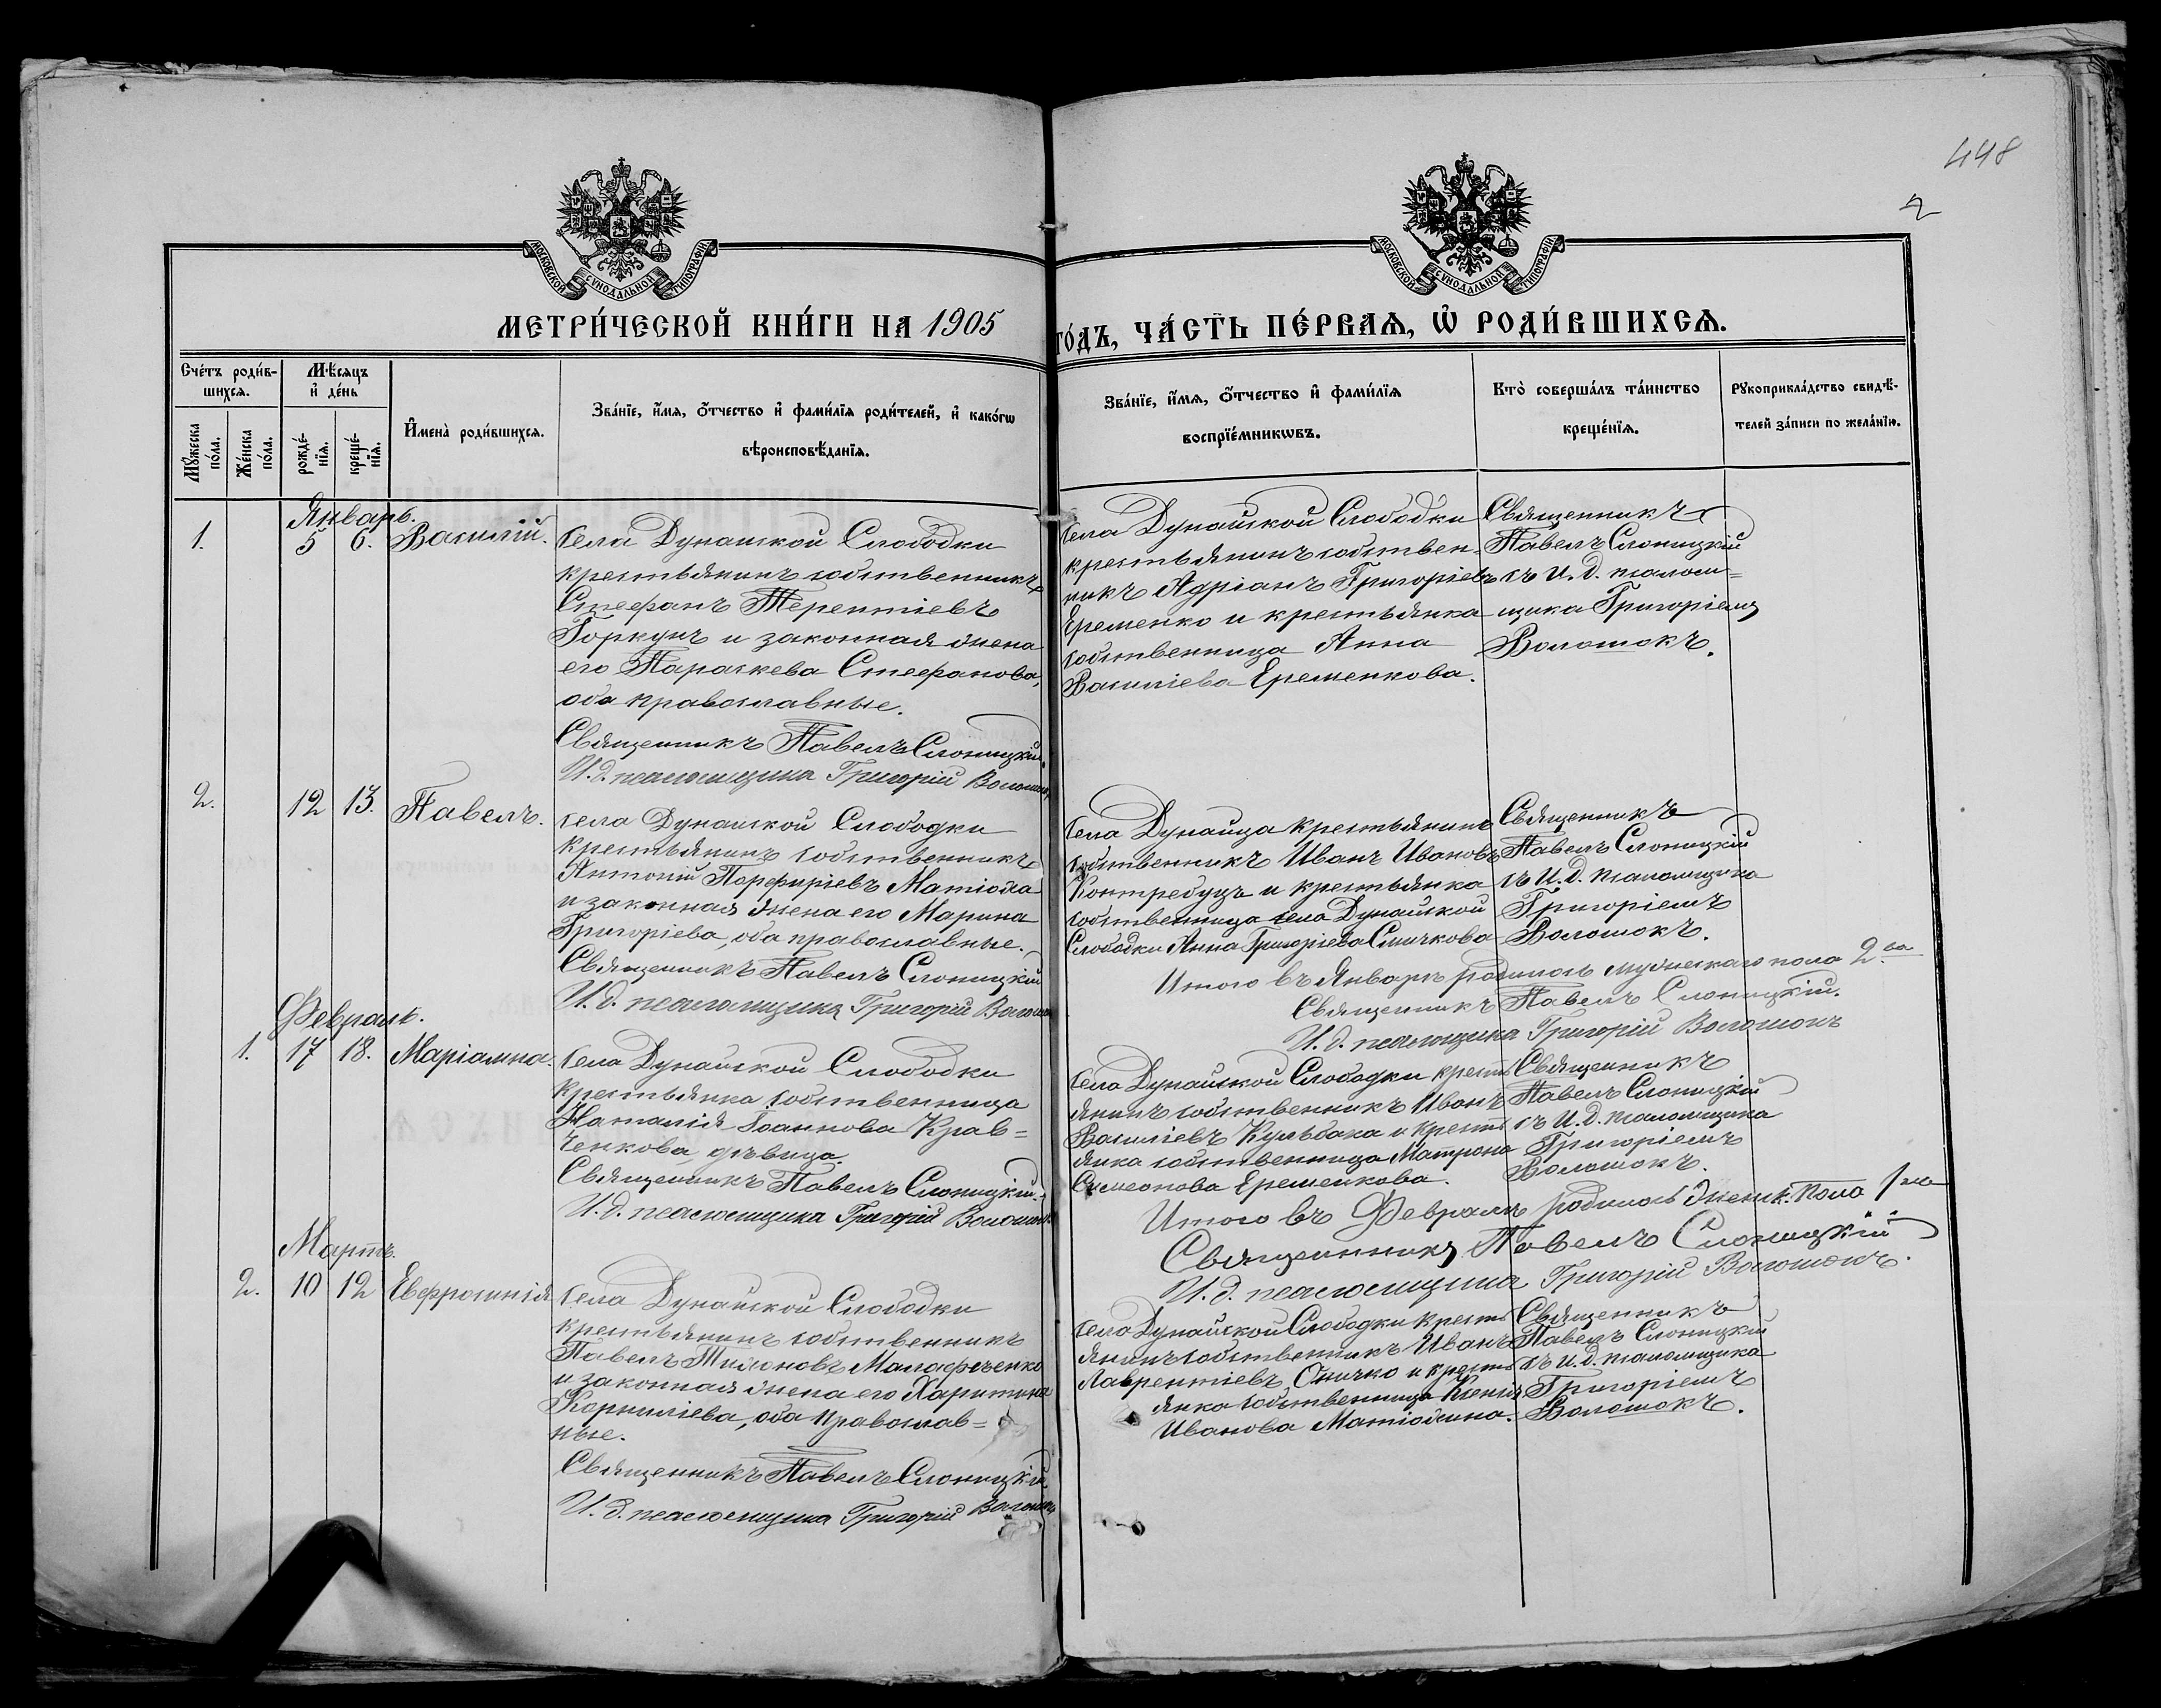 448
2
МОСКОВСКОЙ СУНОДАЛЬНОЙ ТИПОГРАФІИ
МОСКОВСКОЙ СУНОДАЛЬНОЙ ТИПОГРАФІИ
МЕТРИ́ЧЕСКОЙ КНИ́ГИ НА 1905 ГО́ДЪ, ЧА́СТЬ ПЕ́РВАѦ, Ѡ РОДИ́ВШИХСѦ.
Сче́тъ роди́в-
шихсѧ.
Мѣ́сяцъ
и де́нь
Мꙋжеска по́ла.
Же́нска по́ла.
рожде́-нїѧ.
креще́-нїѧ.
Имена̀ роди́вшихсѧ.
Зва́нїе, и́мѧ, о́тчество и фами́лїѧ роди́телей, и како́гѡ
вѣроисповѣ́данїѧ.
Зва́нїе, и́мѧ, о́тчество и фами́лїѧ
воспрїе́мникѡвъ.
Кто̀ соверша́лъ та́инство
креще́нїѧ.
Рꙋкоприкла́дство свидѣ́-
телей за́писи по жела́нїю.
Январь.
1.
5
6.
Василій.
села Дунайской Слободки
крестьянинъ собственникъ
Стефанъ Терентіевъ
Горкунъ и законная жена
его Параскева Стефанова,
оба православные.
Священникъ Павелъ Слоницкій.
И.д. псаломщика Григорій
села Дунайской Слободки
крестьянинъ собствен-
никъ Адріанъ Григоріевъ
Еременко и крестьянка
собственница Анна
Василіева Еременкова.
Священникъ
Павелъ Слоницкій
съ И.д. псалом-
щика Григоріемъ
Волошокъ.
2.
12
13.
Павелъ.
села Дунайской Слободки
крестьянинъ собственникъ
Антоній Порфиріевъ Матюха
и законная жена его Марина
Григоріева, оба православные.
Священникъ Павелъ Слоницкій
И.д. псаломщика Григорій
села Дунайца крестьянинъ
собственникъ Иванъ Ивановъ
Контребуцъ и крестьянка
собственница села Дунайской
Слободки Анна Григоріева
Священникъ
Павелъ Слоницкій
съ И.д. псаломщика
Григоріемъ
Волошокъ.
Итого въ Январѣ родилось мужескаго пола 2.ва
Священникъ Павелъ Слоницкій.
И.д. псаломщика Григорій Волошокъ
Февраль.
1.
17
18.
Маріамна.
села Дунайской Слободки
крестьянка собственница
Наталія Іоаннова Крав-
ченкова, дѣвица.
Священникъ Павелъ Слоницкій.
И.д. псаломщика Григорій Волошокъ
села Дунайской Слободки кресть
янинъ собственникъ Иванъ
Василіевъ Кульбака и кресть
янка собственница Матрона
Симеонова Еременкова.
Священникъ
Павелъ Слоницкій
съ И.д. псаломщика
Григоріемъ
Волошокъ.
Итого въ Февралѣ родилось женск. пола 1на
Священникъ Павелъ Слоницкій
И.д. псаломщика Григорій Волошокъ.
Мартъ.
2.
10
12
Евфросинія
села Дунайской Слободки
крестьянинъ собственникъ
Павелъ Тихоновъ Малафѣенко
и законная жена его Харитина
Корниліева, оба православ-
ные.
Священникъ Павелъ Слоницкій
И.д. псаломщика Григорій
села Дунайской Слободки кресть
янинъ собственникъ Иванъ
Лаврентіевъ и кресть
янка собственница Ксенія
Иванова Матюхина.
Священникъ
Павелъ Слоницкій
съ И.д. псаломщика
Григоріемъ
Волошокъ.